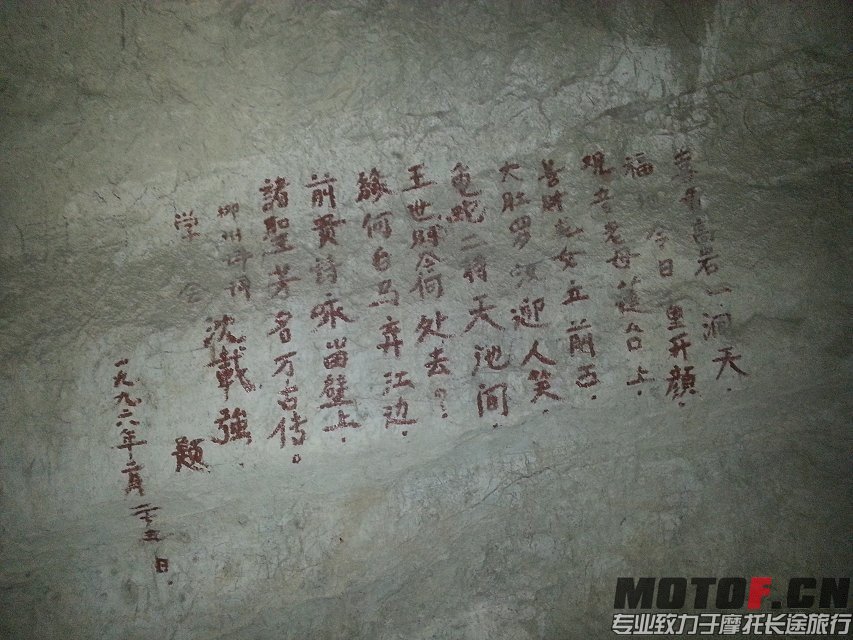 高岩一洞天.
福 今日 重开颜.
观音老母莲台上.
善财龙女立前面.
大肚罗汉迎人笑.
龟蛇二将天池间.
王世 今何处去?
缘何白马弃江边.
前贤诗咏留壁上.
諸聖芳名万古传。
柳州诗词
学会
沈載強
题
一九九六年二月二十五日.
MOTOF.CN
专业致力于摩托长途旅行